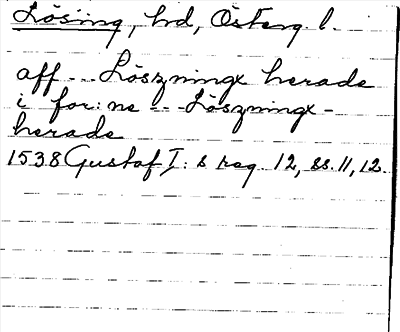 Lösing, hd, Österg. l.
aff - - Löszningx herade
i for: ne - - Löszningx-
herade
1538 Gustaf I: s reg. 12, ss. 11, 12.